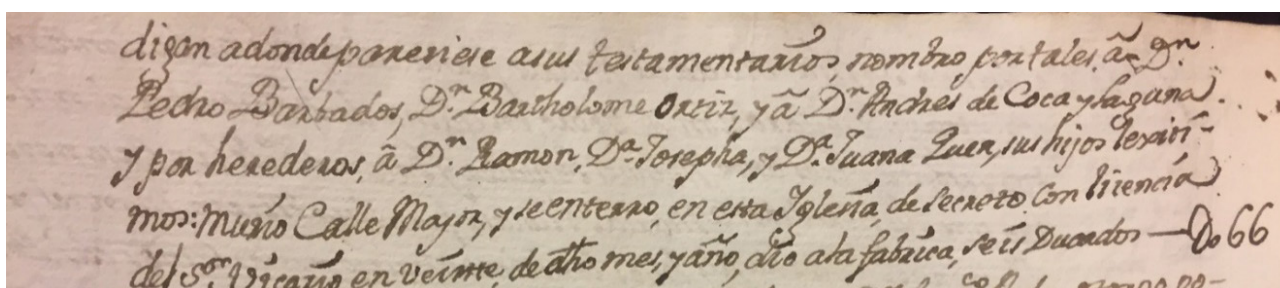 digan adonde pareciese a sus testamentarios, nombro por tales, â Dn.
Pedro Barbados, Dn. Bartholome Ortiz, y â Dn. Andres de Coca y Laguna.
y por herederos, â Dn. Ramon, Da. Josepha, y Da. Juana Quer, sus hijos lexiti-
mos: Murio Calle Mayor, y se enterro, en esta Iglesia, de secreto con licencia
del Sor. Vicario en veinte, de dho mes, y año, dio a la fabrica, seis Ducados — Do 66